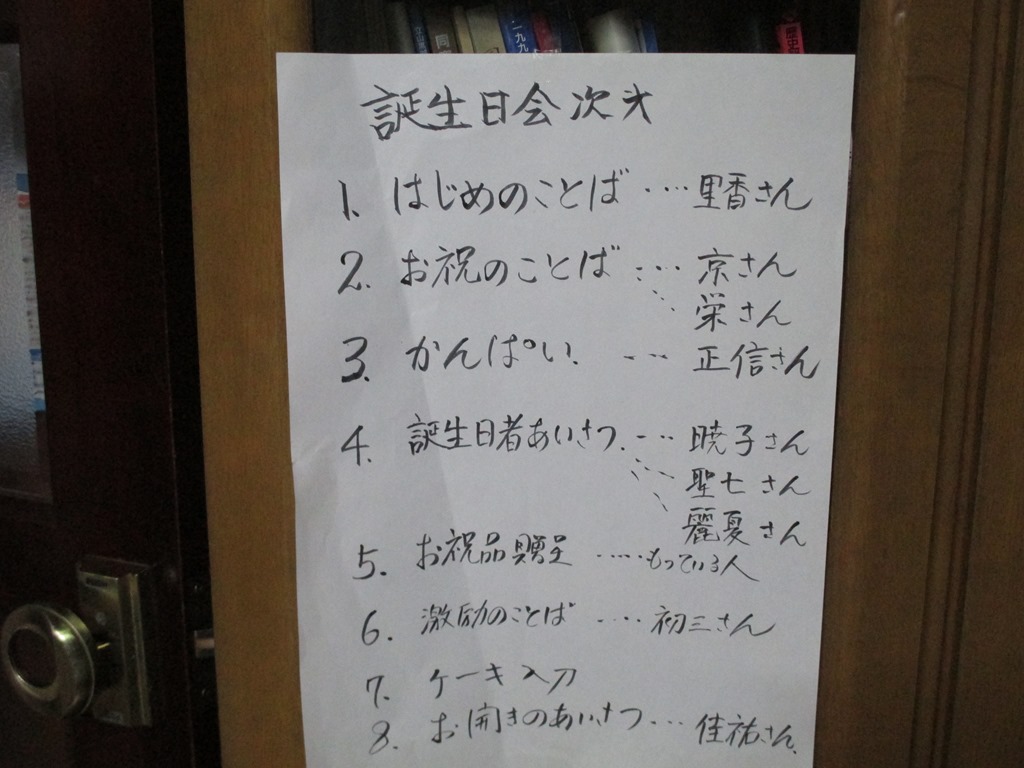 誕生日会次才
1. はじめのことば ‥‥ 里香さん
2. お祝のことば ‥‥ 京さん
栄さん
3. かんぱい. --- 正信さん
4. 誕生日者あいさつ --- 暁子さん
聖七さん
麗夏さん
5. お祝品贈呈 ‥‥ もっている人
6. 激励のことば ‥‥ 初三さん
7. ケーキ入刀
8. お開きのあいさつ ‥‥ 佳祐さん